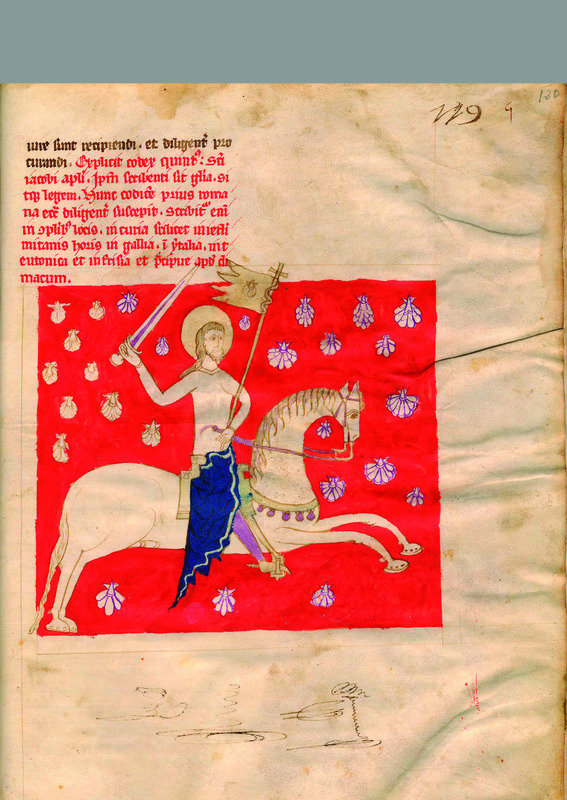 119 9
120
iure sunt recipiendi. et diligent̄ pro
curandi. Explicit codex quint⁹. Sc̄i
iacobi apl̄i. Ip̄m scribenti sit gl̄ia. Si
tq; legenti. Hunc codicē prius roma
na ecc̄ diligent̄ suscepit. Scribit᷑ enī
in ↄpl̄ib⁹ locis. in curia scilicet in
mitanis horis in gallia. ī ẏtalia. in t
eutonica et in frisia et p̄cipue apđ
macum.